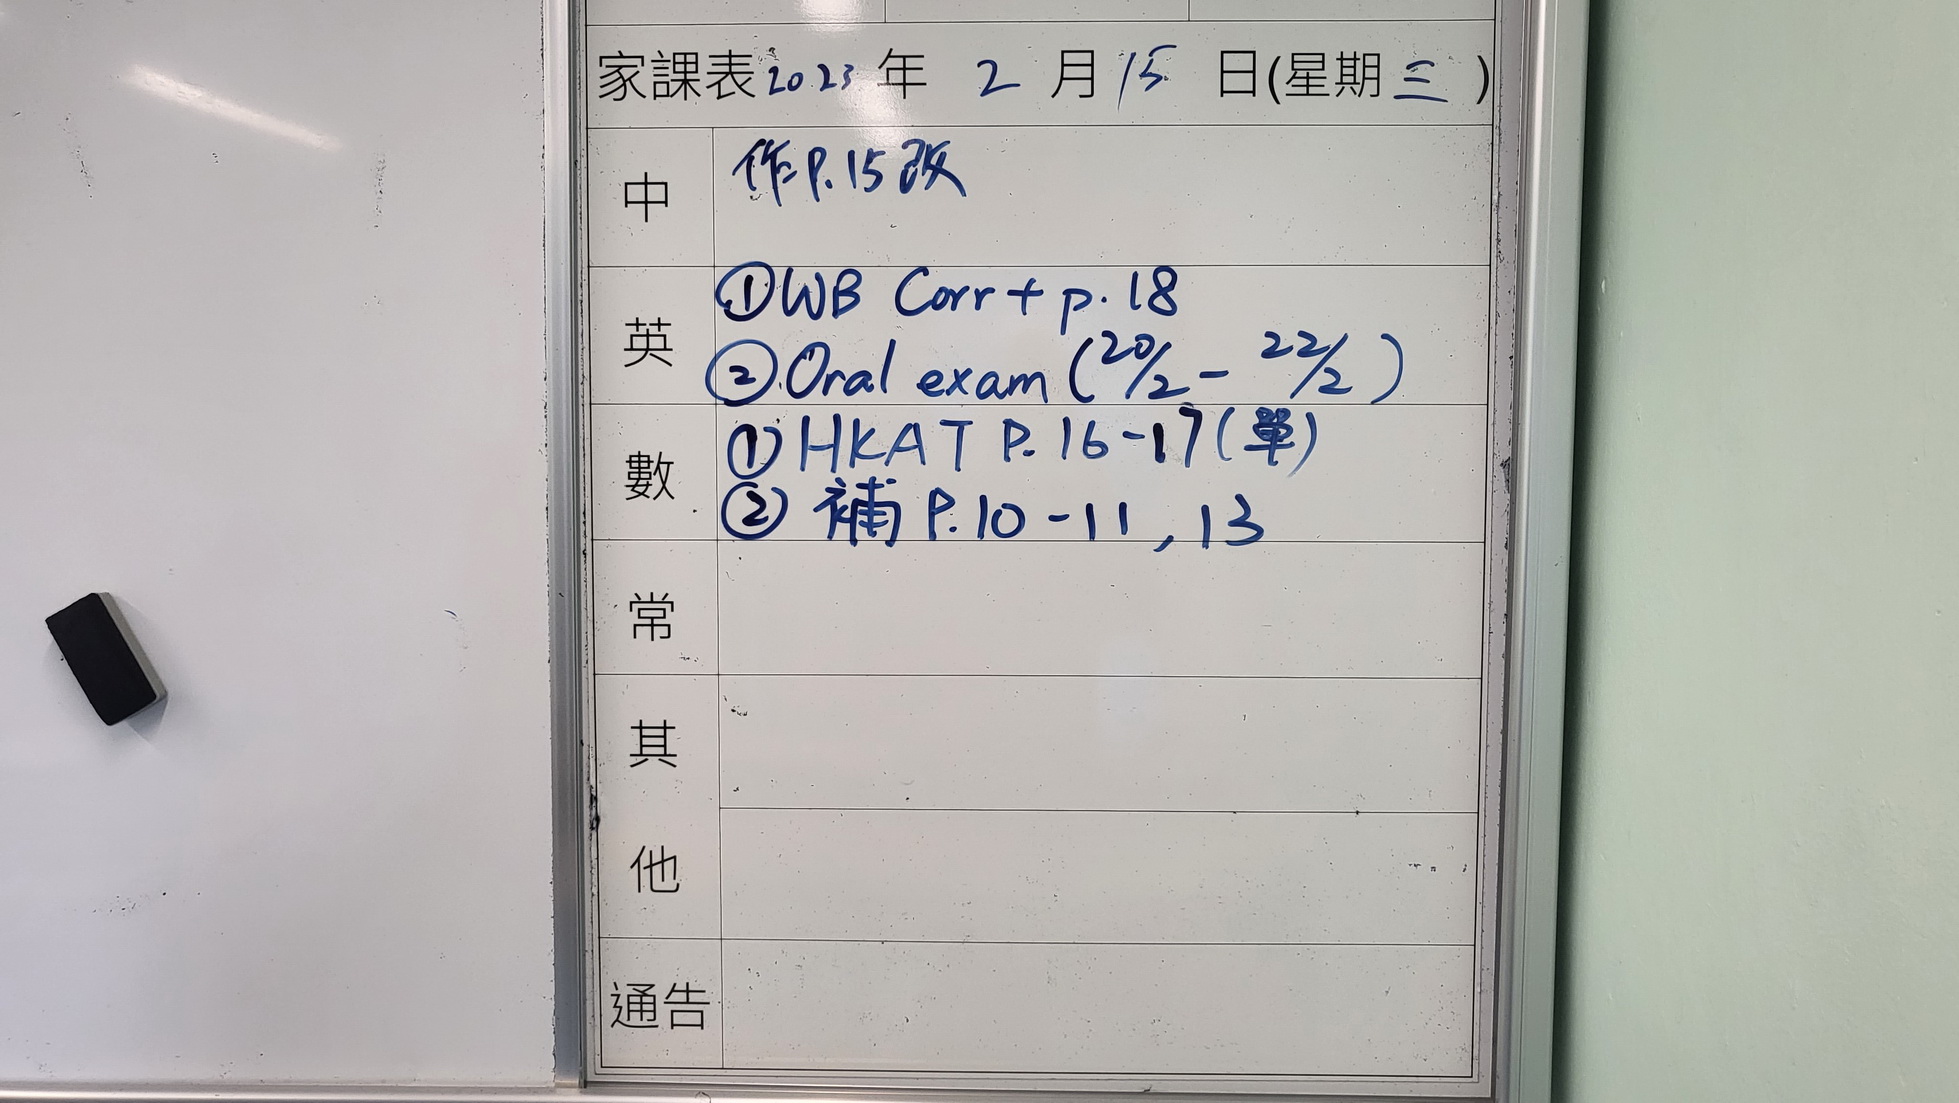 家課表 2023 年 2 月 15 日(星期 三 )
中 作P.15改
英 ①WB Corr + p.18
②Oral exam (20/2 - 22/2)
數 ①HKAT P.16-17(單)
② 補 P.10-11, 13
常
其
他
通告